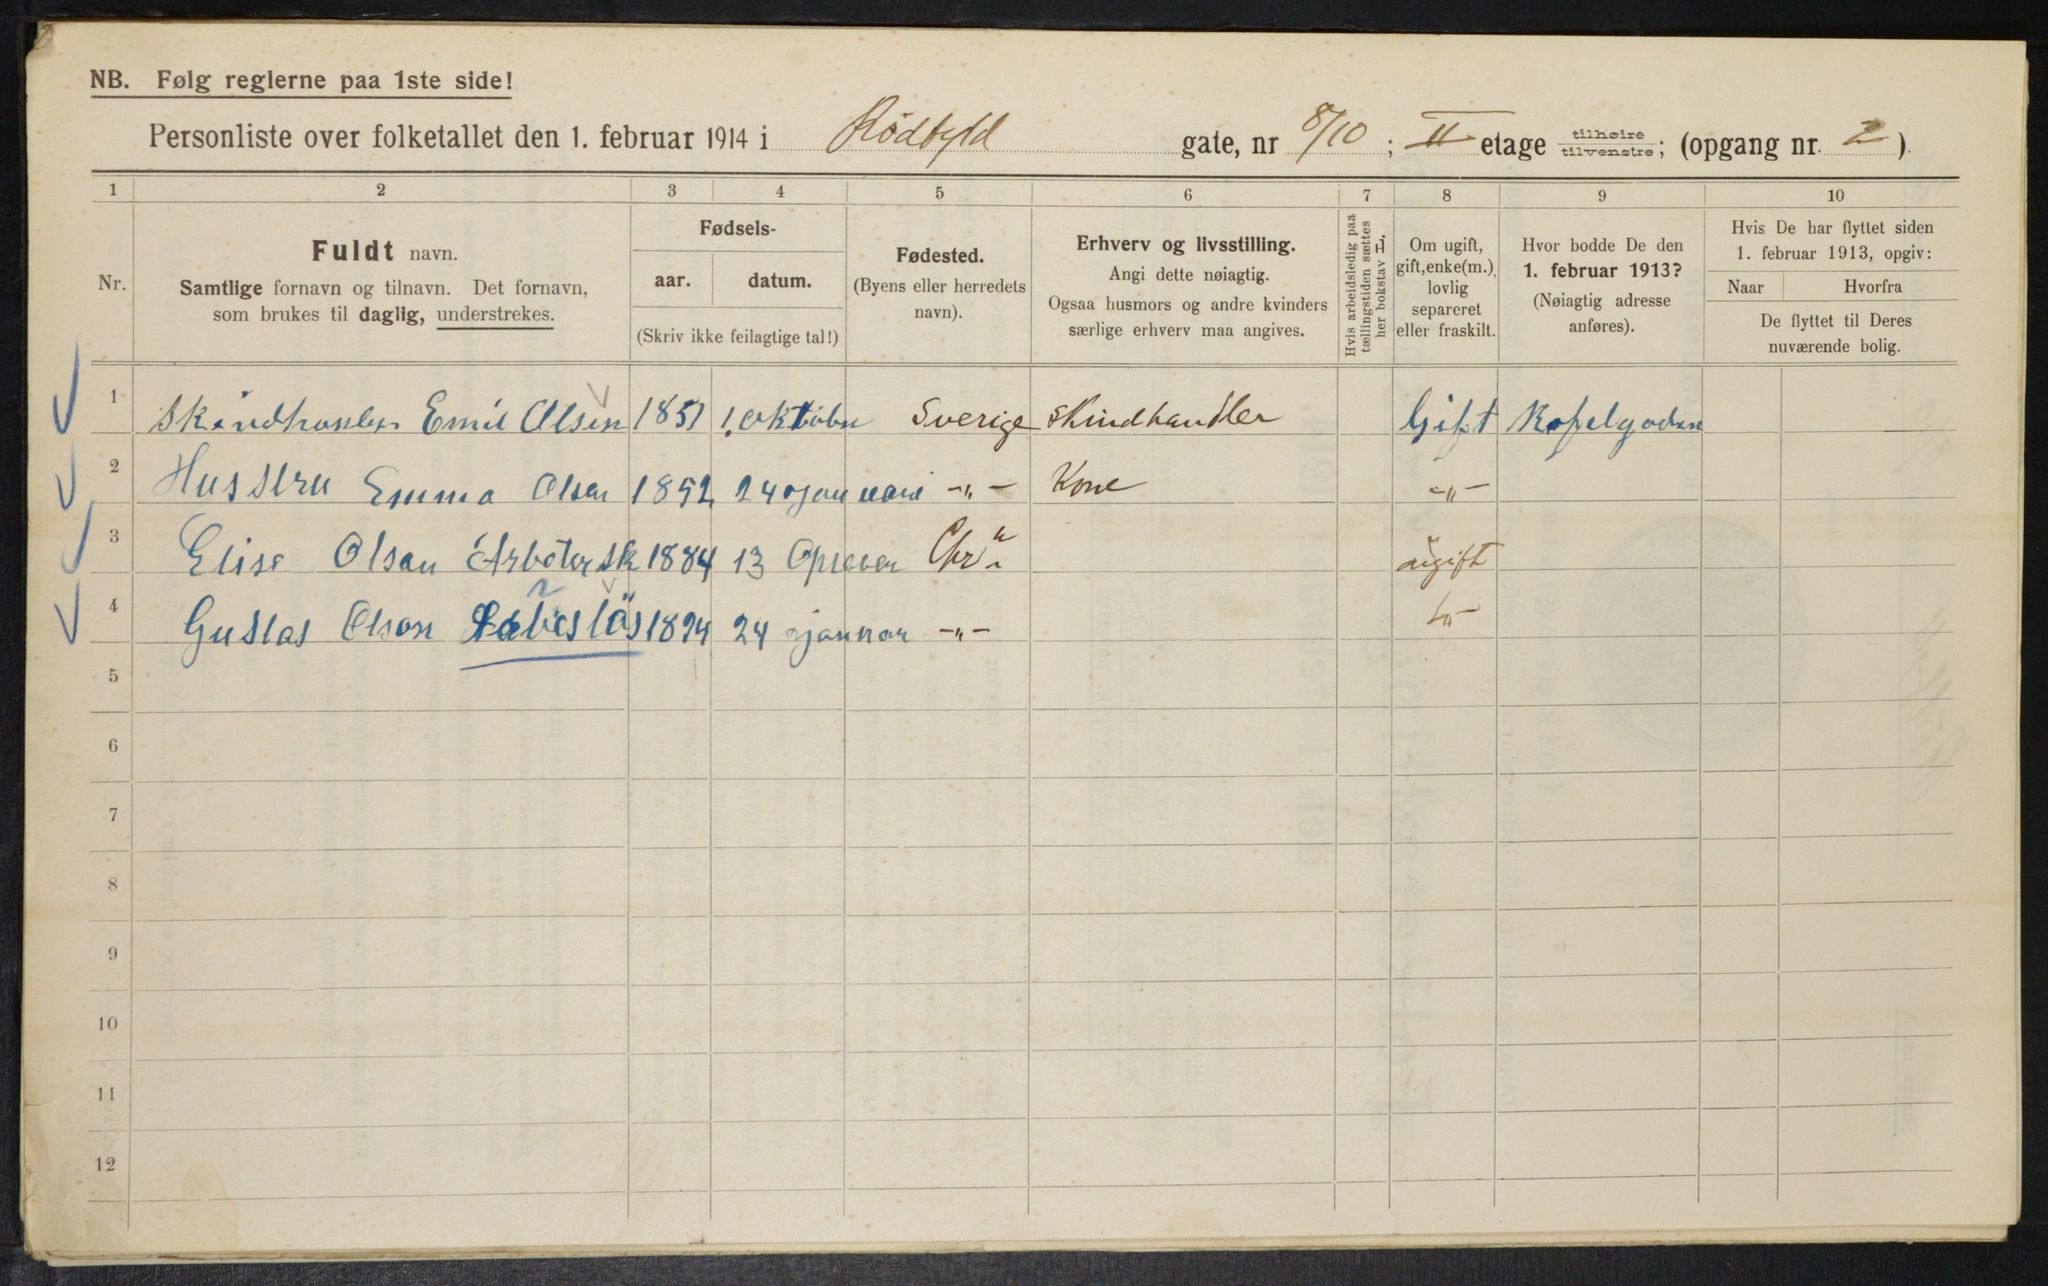 NB. Følg reglerne paa 1ste side!
Personliste over folketallet den 1. februar 1914 i Rødfyld gate, nr 8/10; II etage tilhøire tilvenstre; (opgang nr. 2).
1 2 3 4 5 6 7 8 9 10
Nr.
Fuldt navn.
Samtlige fornavn og tilnavn. Det fornavn,
som brukes til daglig, understrekes.
Fødsels-
aar. datum.
(Skriv ikke feilagtige tal!)
Fødested.
(Byens eller herredets
navn).
Erhverv og livsstilling.
Angi dette nøiagtig.
Ogsaa husmors og andre kvinders
særlige erhverv maa angives.
Hvis arbeidsledig paa
tællingstiden sættes
her bokstav L.
Om ugift,
gift, enke(m.),
lovlig
separeret
eller fraskilt.
Hvor bodde De den
1. februar 1913?
(Nøiagtig adresse
anføres).
Hvis De har flyttet siden
1. februar 1913, opgiv:
Naar Hvorfra
De flyttet til Deres
nuværende bolig.
1 Emil Olsen 1851 1. Sverige Skindhandler Gift
2 Hustru Emma Olsen 1852 24 januari -"- Kone -"-
3 Elise Olsen 1884 13 Chr.a ugift
4 Gustas Olson 1894 24 -"-
5
6
7
8
9
10
11
12